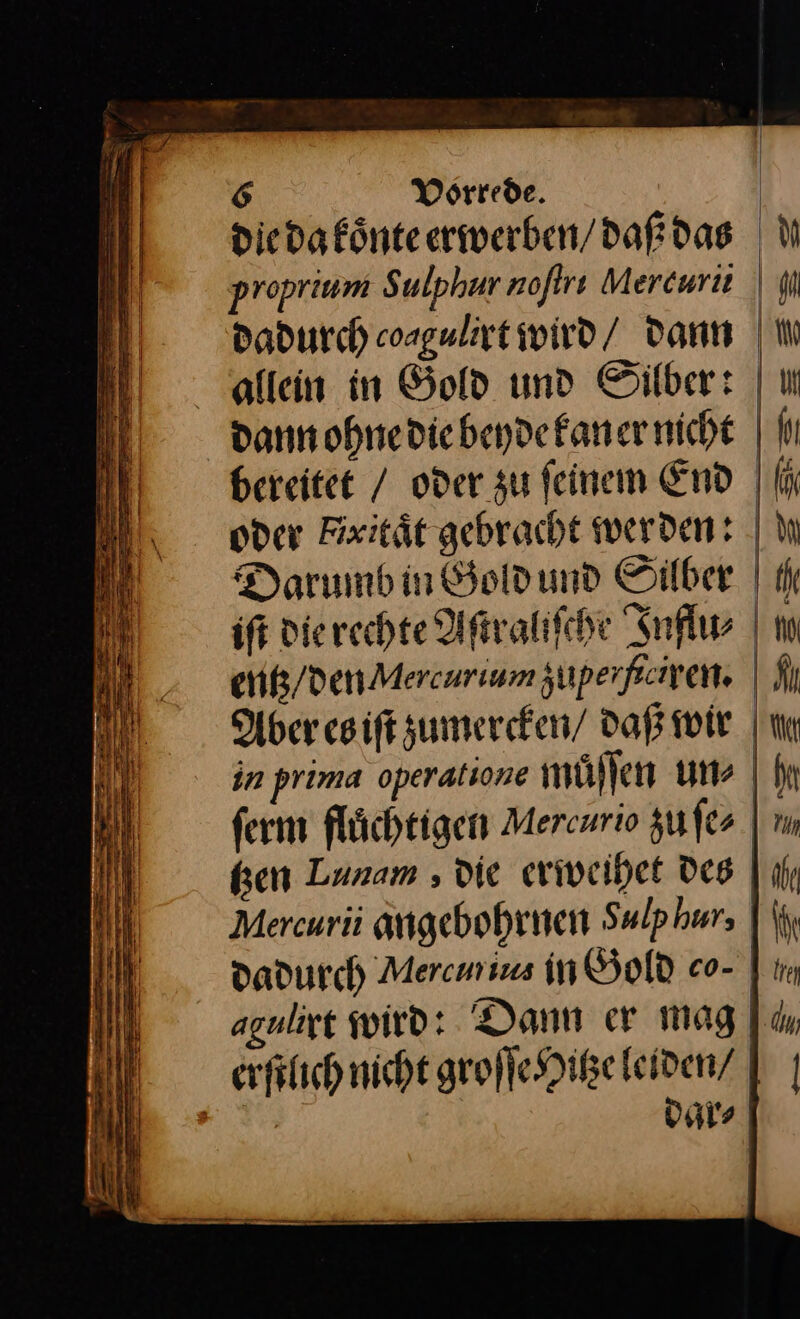 6 Vorrede.
die da koͤnte erwerben/ daß das
proprium Sulphur noſtri Mercurii
dadurch coagulirt wird / dann
allein in Gold und Silber:
dann ohne die beyde kan er nicht
bereitet / oder zu ſeinem End
oder Fixitaͤt gebracht werden:
Darumb in Gold und Silber
iſt die rechte Aſtraliſche Influ⸗
entz/ den Mercurium zu perficiren.
Aber es iſt zu mercken/ daß wir
in prima operatione muͤſſen un⸗
ſerm fluͤchtigen Mercurio zu ſe⸗
tzen Lunam , die erweihet des
Mercurii angebohrnen Sulphur,
dadurch Mercurius in Gold co-
agulirt wird: Dann er mag
erſtlich nicht groſſe Hitze leiden/
dar⸗